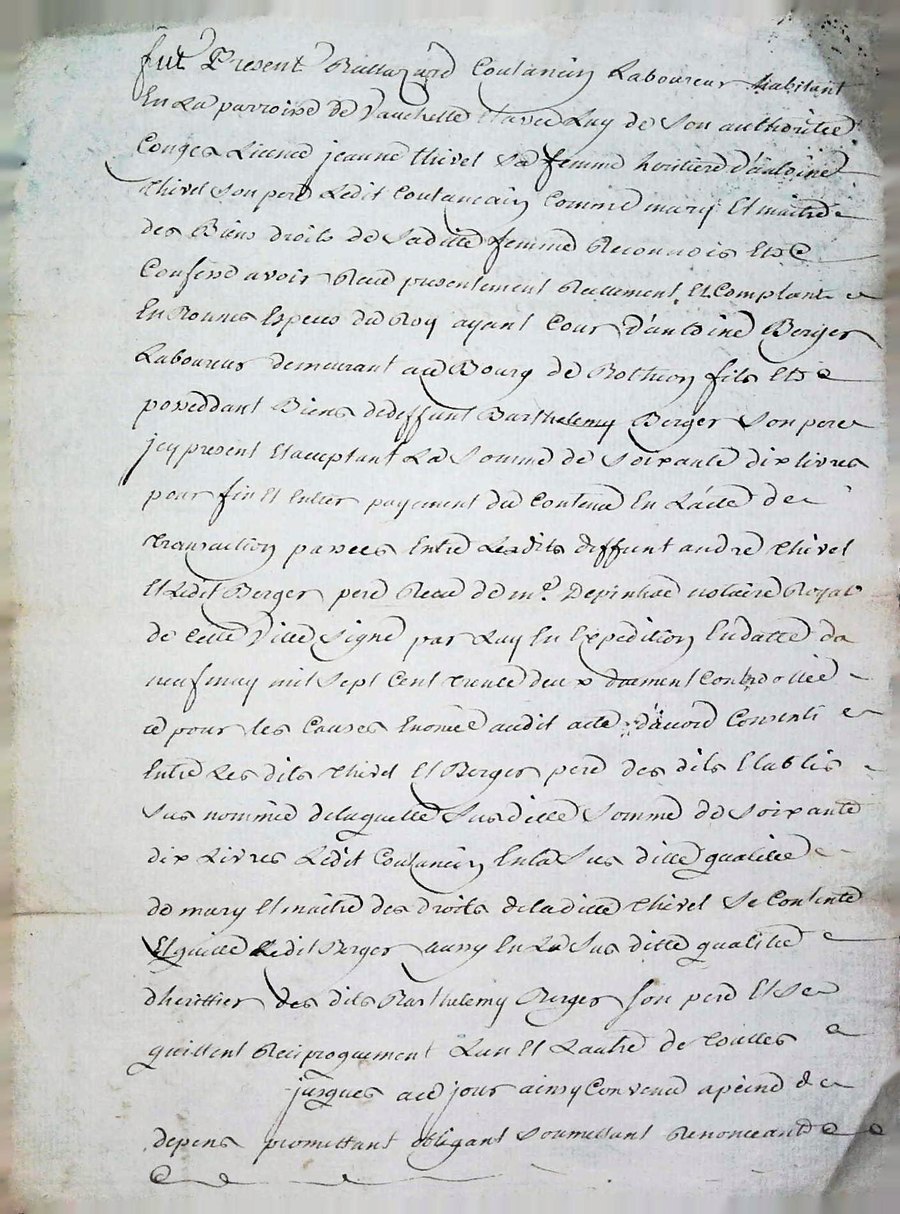 fut Present Baltazard Coulancin Laboureur habitant
En La parroisse de Vauchelle Et avec Luy de Son authorittée
Congé Lisence jeanne thivel Sa femme heritiere d'antoine
thivel Son pere Ledit Coulancin Comme mary Et maitre
des Biens droits de Sa ditte femme Reconnois Et
Confesse avoir Receu presentement Reellement Et Comptant
En Bonnes Especes du Roy ayant Cour d'antoine Berger
Laboureur demeurant au Bourg de fils Et
posseddant Biens de deffunt Barthelemy Berger Son pere
jcy present Et acceptant La Somme de Soixante dix livres
pour fin Et Entier payement du Contenu En L'acte de
transaction passees Entre Lesdits deffunt andre thivel
Et Ledit Berger pere Receu de me. Depinhac notaire Royal
de Cette Ville Signé par Luy En Expedition En datte du
neuf may mil Sept Cent trente deux duement Controllée
et pour les Causes Enoncé audit acte d'avoir Consenti
Entre Les dits thivel Et Berger pere des dits Etablis
Sus nommée de laquelle Susditte Somme de Soixante
dix Livres Ledit Coulancin En la Sus ditte qualitée
de mary Et maitre des droits de laditte thivel Se Contente
Et quitte Ledit Berger aussy En La Sus ditte qualitée
d'herittier des dits Barthelemy Berger Son pere Et Se
quittent Reciproquement L'un Et L'autre de touttes
jusques a ce jour ainsy Convenu a peine de
depens promettant obligeant Soumettant Renonceant